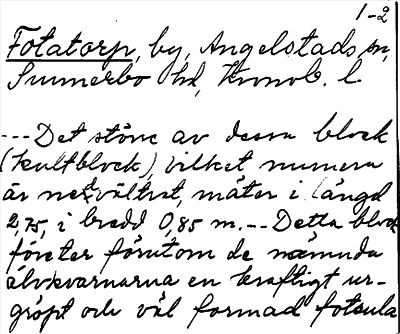 1-2
Fotatorp, by, Angelstads sn,
Sunnerbo hd, Kronob. l.
---Det störe av dessa block
(kultblock), vilket numera
är nedvältrat, mäter i längd
2,75, i bredd 0,85 m.--Detta block
företer förutom de nämnda
älvkvarnarna en kraftigt ur-
gröpt och väl formad fotsula